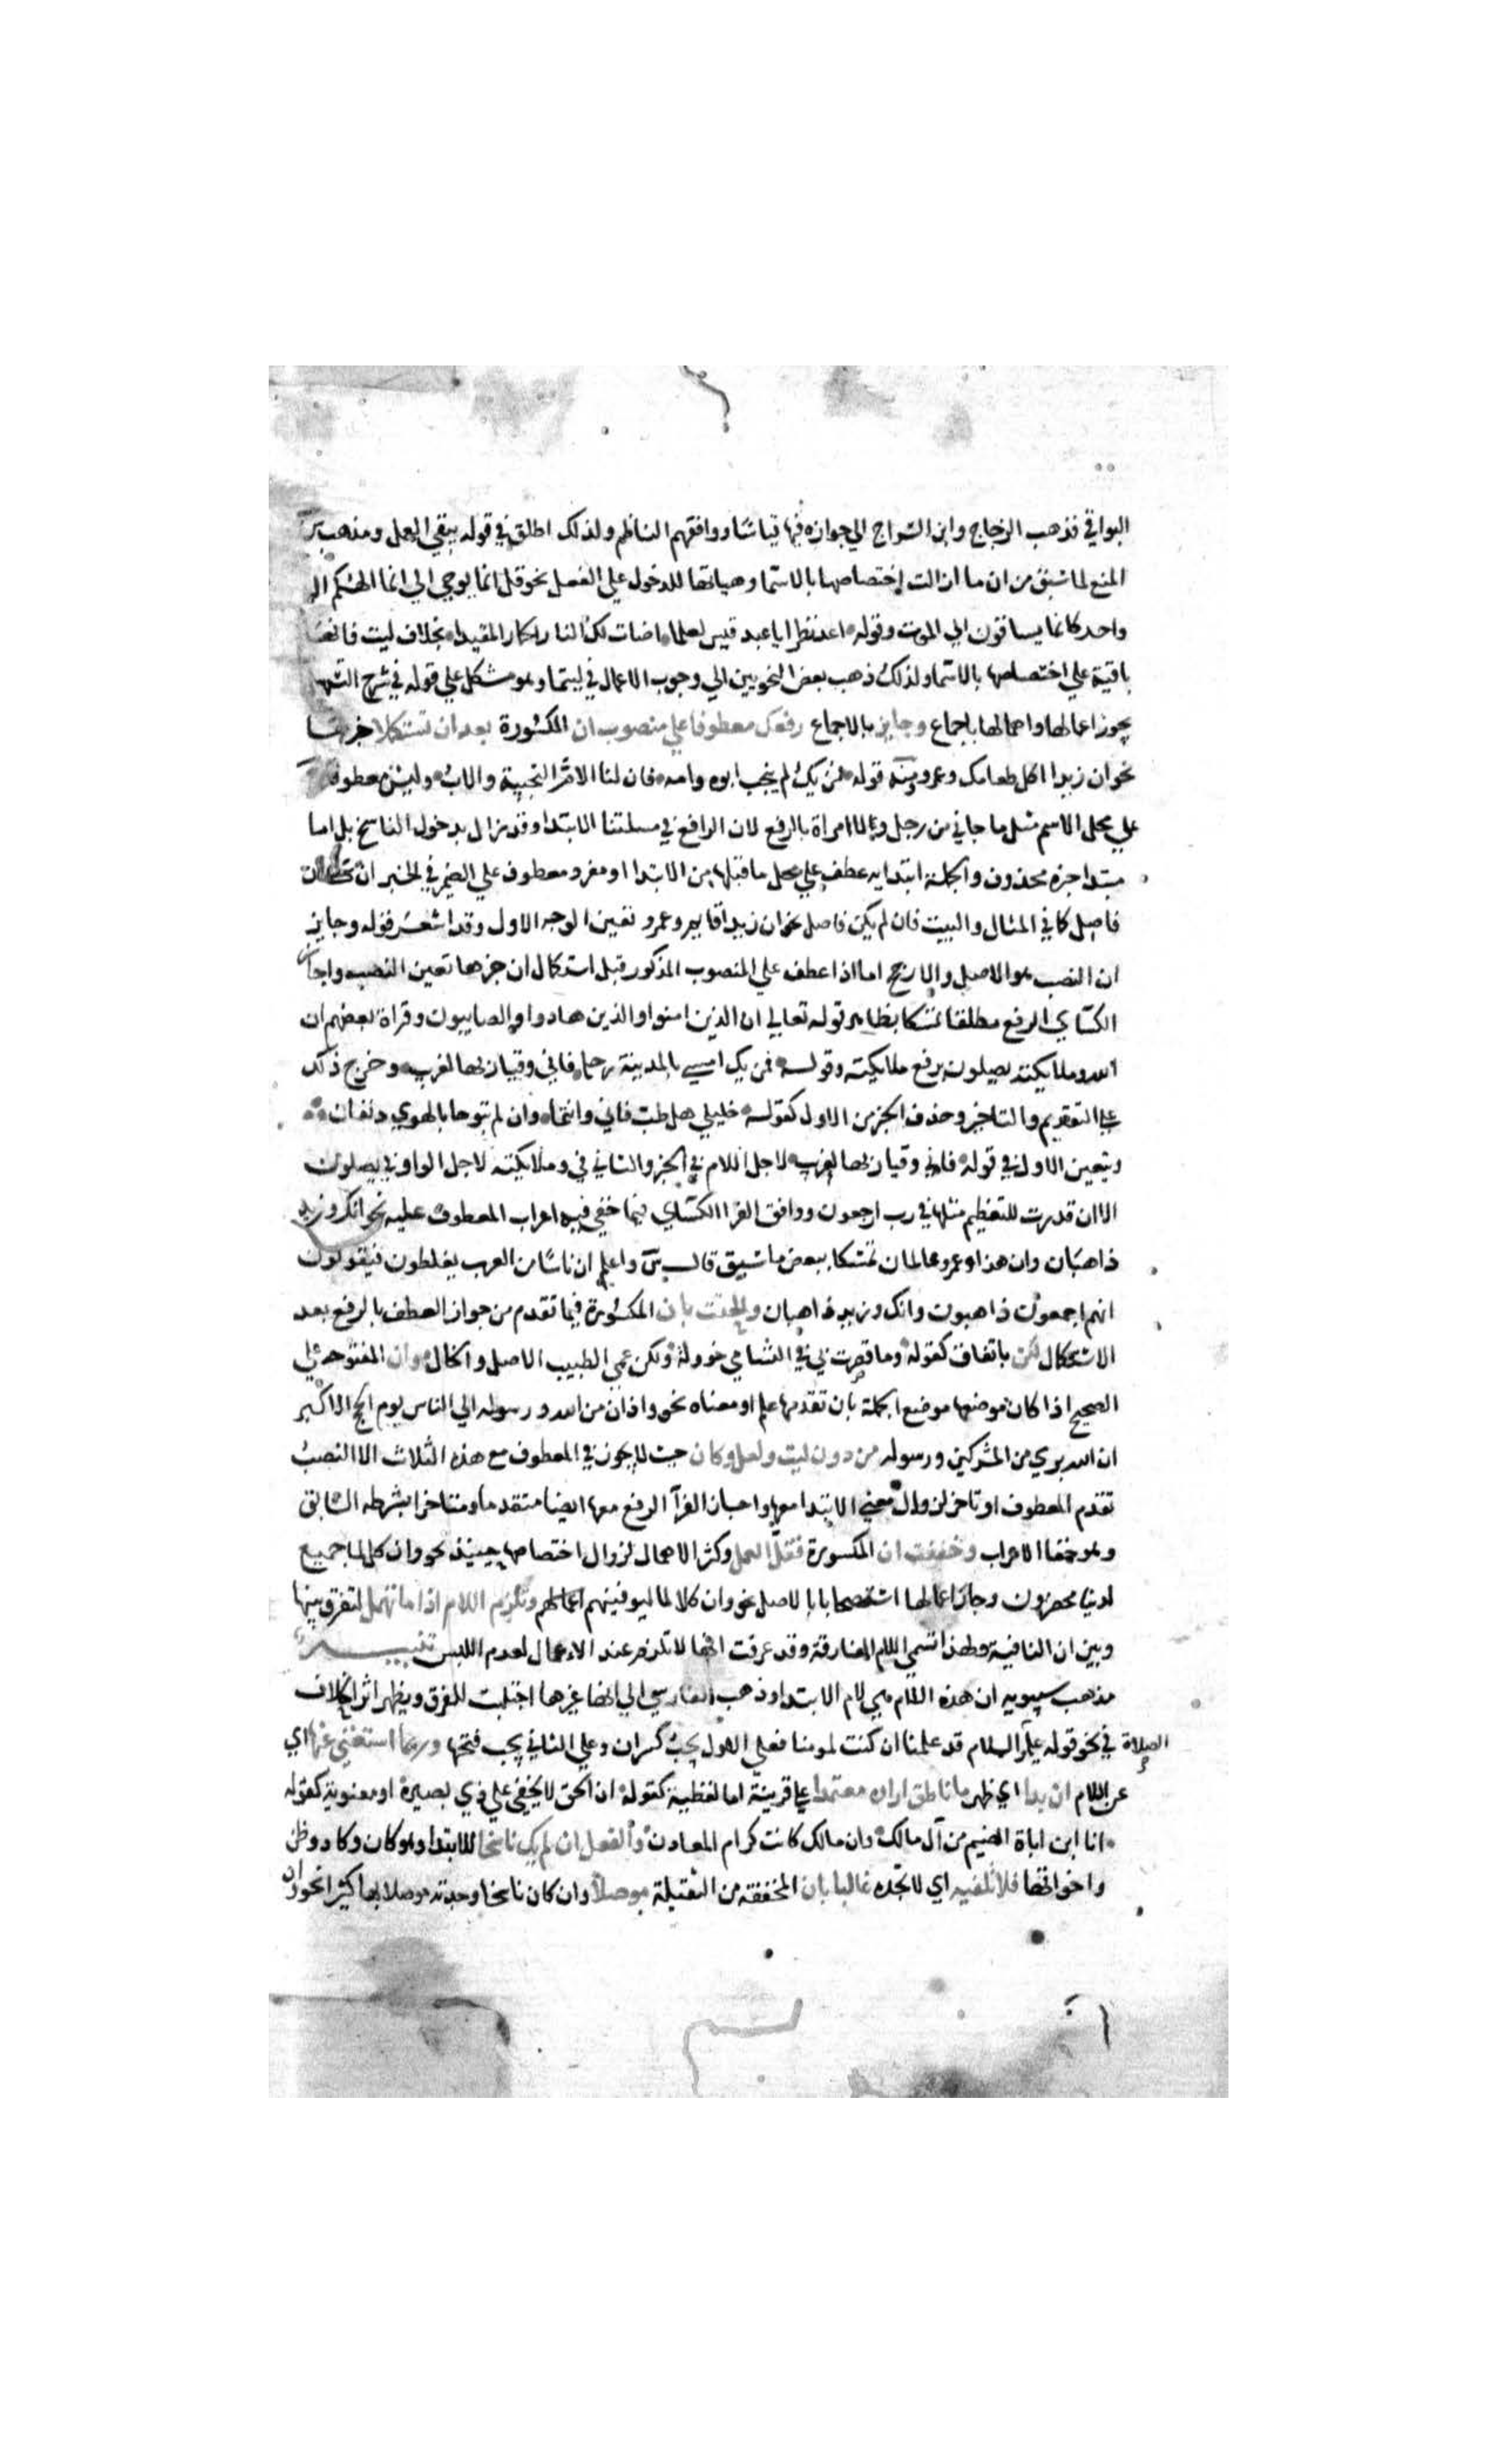 البواقي فذهب الزجاج وابن السراج الي جوازه فيها قياسا ووافقهم الناظم ولذلك اطلق في قوله يبقي العمل ومذهب س
المنع لما سبق من ان ما ازالت اختصاصها بالاسما وهياتها للدخول علي الفعل نحو قل انما يوحي الي انما الهكم اله
واحد كانما يساقون الي الموت وقوله اعد نظرا يا عبد قيس لعلما اضات لك النار الحمار المقيدا بخلاف ليت فانها
باقية علي اختصاصها بالاسما ولذلك ذهب بعض النحويين الي وجوب الاعمال في ليتما وهو مشكل علي قوله في شرح التسهيل
يجوز اعمالها واهمالها باجماع وجايز بالاجماع رفعك معطوفا علي منصوب ان المكسورة بعد ان تستكملا خبرها
نحو ان زيدا اكل طعامك وعمرو ومنه قوله فمن يك لم ينجب ابوه وامه فان لنا الام النجيبة والاب وليس معطوفا
علي محل الاسم مثل ما جاني من رجل ولا امراة بالرفع لان الرافع في مسلتنا الابتدا وقد زال بدخول الناسخ بل اما
مبتدا خبره محذوف والجملة ابتدايه عطف علي محل ما قبلها من الابتدا او مفرد معطوف علي الضمير في الخبر ان كان
فاصل كما في المثال والبيت فان لم يكن فاصل نحو ان زيدا قايم وعمرو تعين الوجه الاول وقد اشعر قوله وجايز
ان النصب هو الاصل والارجح اما اذا عطف علي المنصوب المذكور قبل استكمال ان خبرها تعين النصب واجاز
الكساي الرفع مطلقا تمسكا بظاهر قوله تعالي ان الذين امنوا والذين هادوا والصابيون وقراة بعضهم ان
الله وملايكته يصلون برفع ملايكته وقوله فمن يك امسي بالمدينة رحله فاني وقيار بها لغريب وخرج ذلك
علي التقديم والتاخير وحذف الخبر من الاول كقوله خليلي هل طب فاني وانتما وان لم تبوحا بالهوي دنفان
ويتعين الاول في قوله فاني وقيار بها لغريب لاجل اللام في الخبر والثاني في وملايكته لاجل الواو في يصلون
الا ان قدرت للتعظيم مثلها في رب ارجعون ووافق الفرا الكساي فيما خفي فيه اعراب المعطوف عليه نحو انك وزيد
ذاهبان وان هذا وعمرو عالمان تمسكا ببعض ما سبق قال س واعلم ان ناسا من العرب يغلطون فيقولون
انهم اجمعون ذاهبون وانك وزيد ذاهبان والحقت بان المكسورة فيما تقدم من جواز العطف بالرفع بعد
الاستكمال لكن باتفاق كقوله وما قصرت بي في التسامي خوولة ولكن عمي الطيب الاصل والخال وان المفتوحه علي
الصحيح اذا كان موضعها موضع الجملة بان تقدمها علم او معناه نحو واذان من الله ورسوله الي الناس يوم الحج الاكبر
ان الله بري من المشركين ورسوله من دون ليت ولعل وكان حيث لا يجوز في المعطوف مع هذه الثلاث الا النصب
تقدم المعطوف او تاخر لزوال معني الابتدا معها واجاز الفرا الرفع معها ايضا متقدما ومتاخرا بشرطه السابق
وهو خفا الاعراب وخففت ان المكسورة فقل العمل وكثر الاهمال لزوال اختصاصها حينيذ نحو وان كل لما جميع
لدينا محضرون وجاز اعمالها استصحابا بالاصل نحو وان كلا لما ليوفينهم اعمالهم وتلزم اللام اذا ما تهمل لتفرق بينها
وبين ان النافية ولهذا تسمي اللام الفارقة وقد عرفت انها لا تلزم عند الاعمال لعدم اللبس تنبيه
مذهب سيبويه ان هذه اللام هي لام الابتدا وذهب الفارسي الي انها غيرها اجتلبت للفرق ويظهر اثر الخلاف
الصلاة في نحو قوله عليه السلام قد علمنا ان كنت لمومنا فعلي الاول يجب كسر ان وعلي الثاني يجب فتحها وربما استغني عنها اي
عن اللام ان بدا اي ظهر ما ناطق اراده معتمدا علي قرينة اما لفظية كقوله ان الحق لا يخفي علي ذي بصيرة او معنوية كقوله
انا ابن اباة الضيم من آل مالك وان مالك كانت كرام المعادن والفعل ان لم يك ناسخا للابتدا وهو كان وكاد وظن
واخواتها فلا تلفيه اي لا تجده غالبا بان المخففة من الثقيلة موصلا وان كان ناسخا وجدته موصلا بها كثيرا نحو وان
بسم